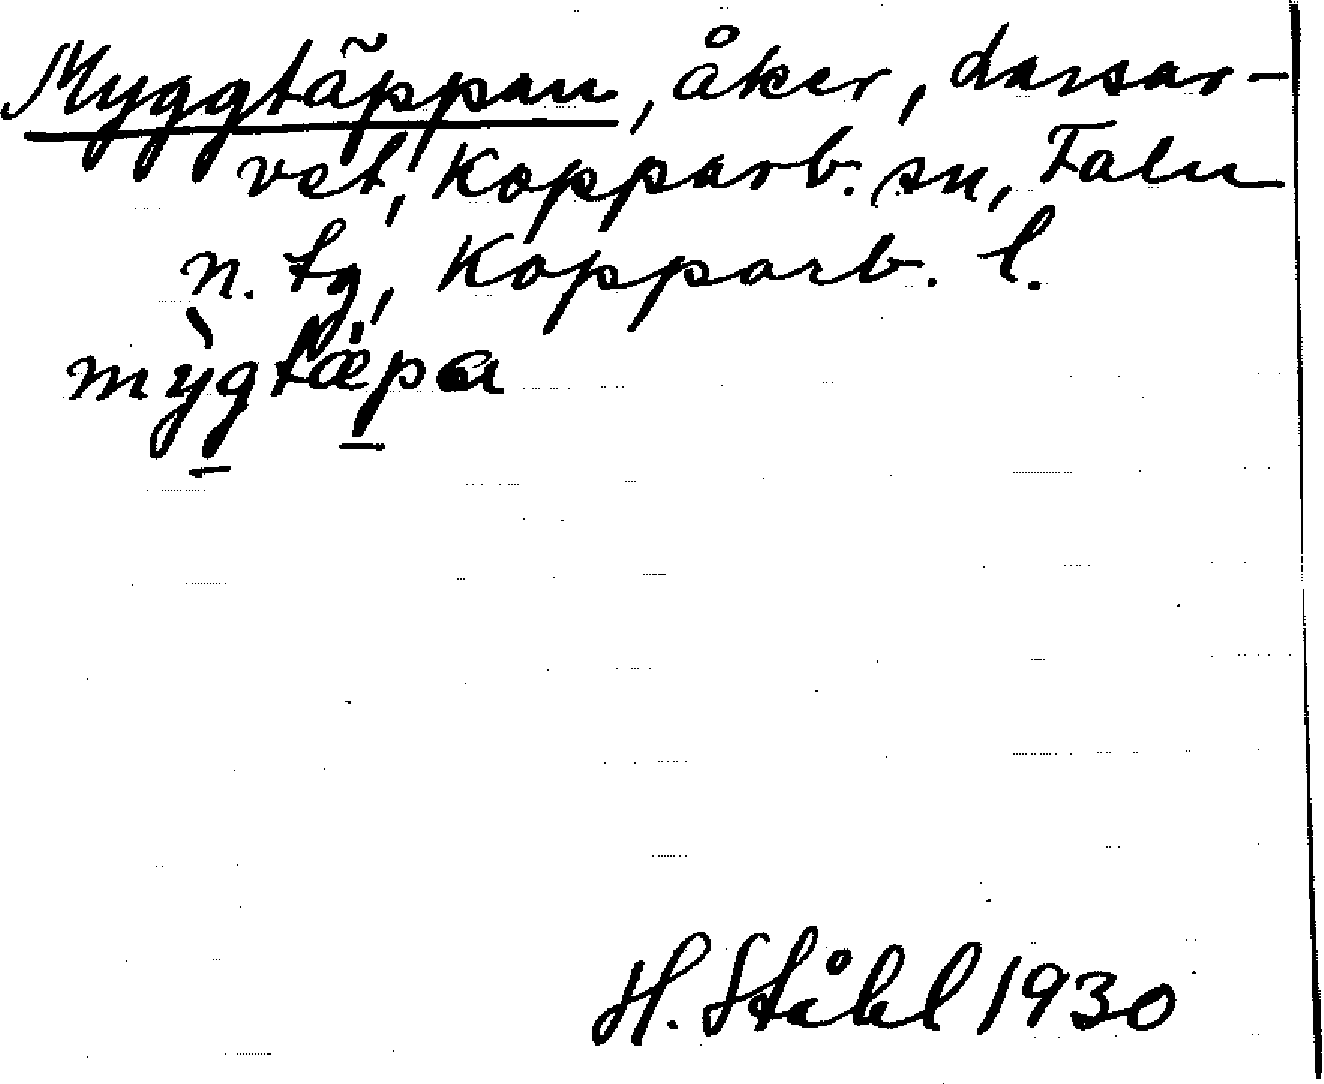 Myggtäppan, åker, Darsar-
vet, Kopparb. sn, Falu
n. tg, Kopparb. l.
mỳgtæpa
H. Ståhl 1930